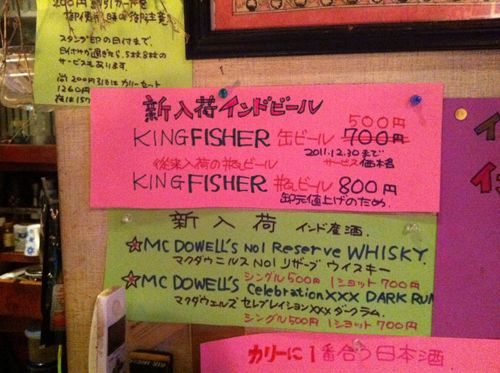 200円割引カードを
御使用時の御注意
スタンプ印の日付まで
サービスもあります
1260円
新入荷インドビール
500円
KINGFISHER 缶ビール 700円
2011.12.30まで
サービス価格
従来入荷の瓶ビール
KINGFISHER 瓶ビール 800円
卸元値上げのため.
新入荷 インド産酒.
☆MC DOWELL'S No1 Reserve WHISKY
マクダウエルス No1 リザーブ ウイスキー
シングル500円 1ショット700円
☆MC DOWELL'S Celebration XXX DARK RUM
マクダウェルズ セレブレイションXXXダークラム.
シングル500円 1ショット700円
カリーに1番合う日本酒.
イ
イ